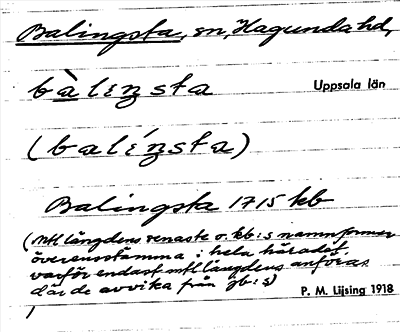 Balingsta, sn, Hagunda hd,
bàliŋsta
Uppsala län
(balíŋsta)
Balingsta 1715 kb
(Mtl längdens senaste o. kb:s namnformer
överensstämma i hela häradet
varför endast mtl längdens anföras
där de avvika från jb:s)
P. M. Lijsing 1918